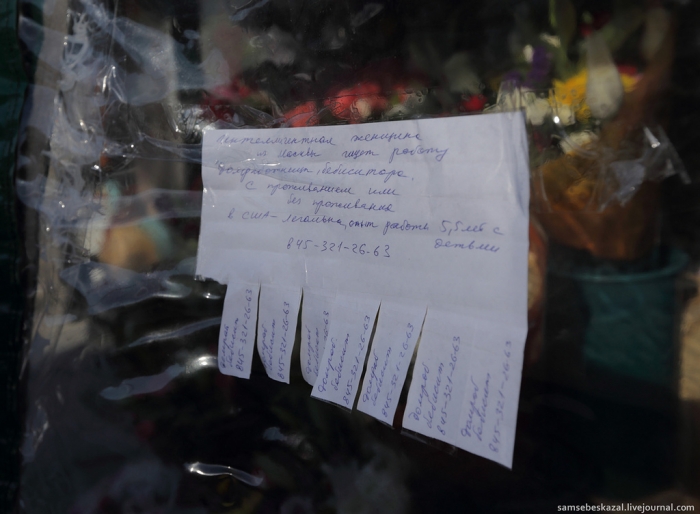 Интеллигентная женщина
из Москвы ищет работу
домработницы, бебиситора.
С проживанием или
без проживания
в США - легально, опыт работы 5,5 лет с
детьми
845-321-26-63
845-321-26-63
845-321-26-63
845-321-26-63
845-321-26-63
845-321-26-63
845-321-26-63
samsebeskazal.livejournal.com